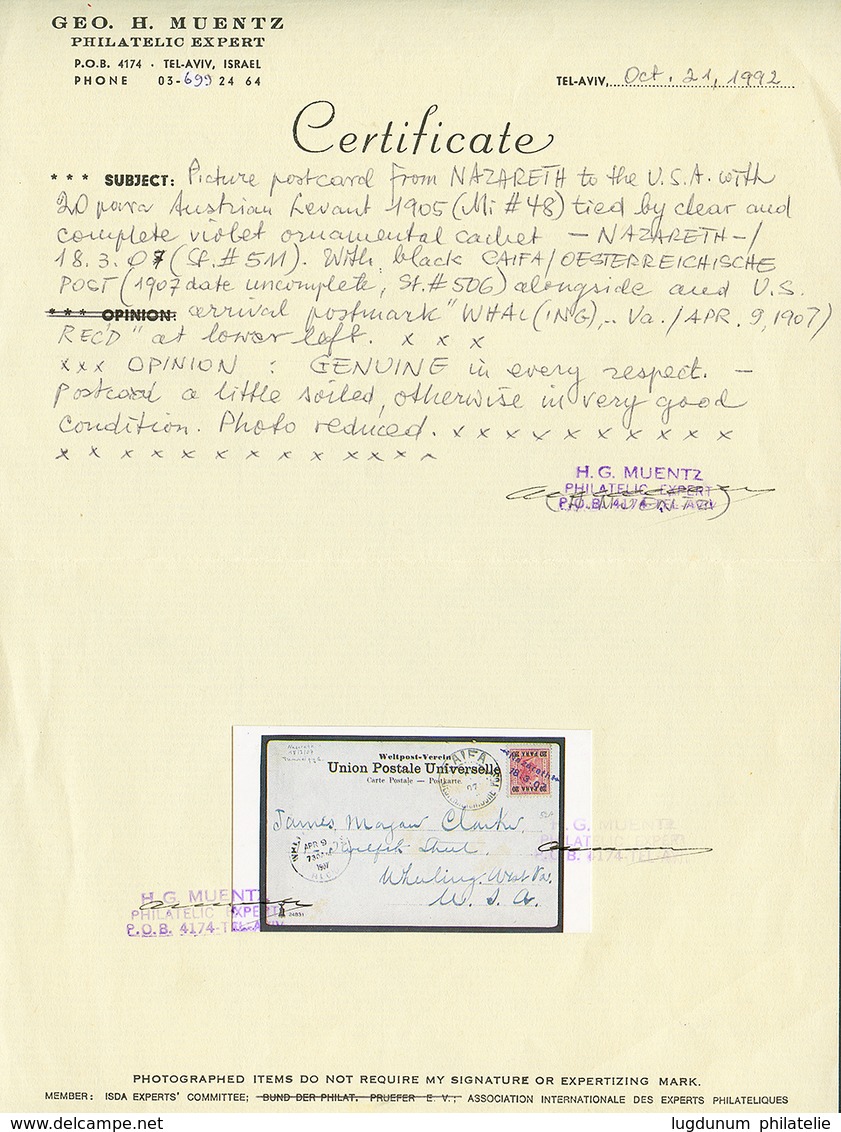 GEO. H. MUENTZ
PHILATELIC EXPERT
P.O.B. 4174 · TEL-AVIV, ISRAEL
PHONE 03-699 24 64
TEL-AVIV, Oct. 21, 1992
Certificate
* * * SUBJECT: Picture postcard from NAZARETH to the U.S.A. with
20 para Austrian Levant 1905 (Mi # 48) tied by clear and
complete violet ornamental cachet – NAZARETH – /
18.3.07 (St. # 511). With black CAIFA/OESTERREICHISCHE
POST (1907 date uncomplete, St. # 506) alongside and U.S.
* * * OPINION: arrival postmark "WHAL(ING),.. Va. / APR. 9, 1907)
REC'D" at lower left. x x x
x x x OPINION : GENUINE in every respect. –
Postcard a little soiled, otherwise in very good
condition. Photo reduced. x x x x x x x x x x x
x x x x x x x x x x x x x x
H. G. MUENTZ
PHILATELIC EXPERT
P.O.B. 4174-TEL-AVIV
(H. MUENTZ)
Weltpost-Verein
Union Postale Universelle
Carte Postale — Postkarte
CAIFA
07
20 PARA 20
Nazareth
18.3.07
James Magaw Clarke,
APR 9
1907
REC'D
Wheeling. West Va.
U. S. A.
24931
H. G. MUENTZ
PHILATELIC EXPERT
P.O.B. 4174-TEL-AVIV
H. G. MUENTZ
PHILATELIC EXPERT
P.O.B. 4174-TEL-AVIV
PHOTOGRAPHED ITEMS DO NOT REQUIRE MY SIGNATURE OR EXPERTIZING MARK.
MEMBER: ISDA EXPERTS' COMMITTEE; BUND DER PHILAT. PRUEFER E. V.; ASSOCIATION INTERNATIONALE DES EXPERTS PHILATELIQUES
lugdunum philatelie